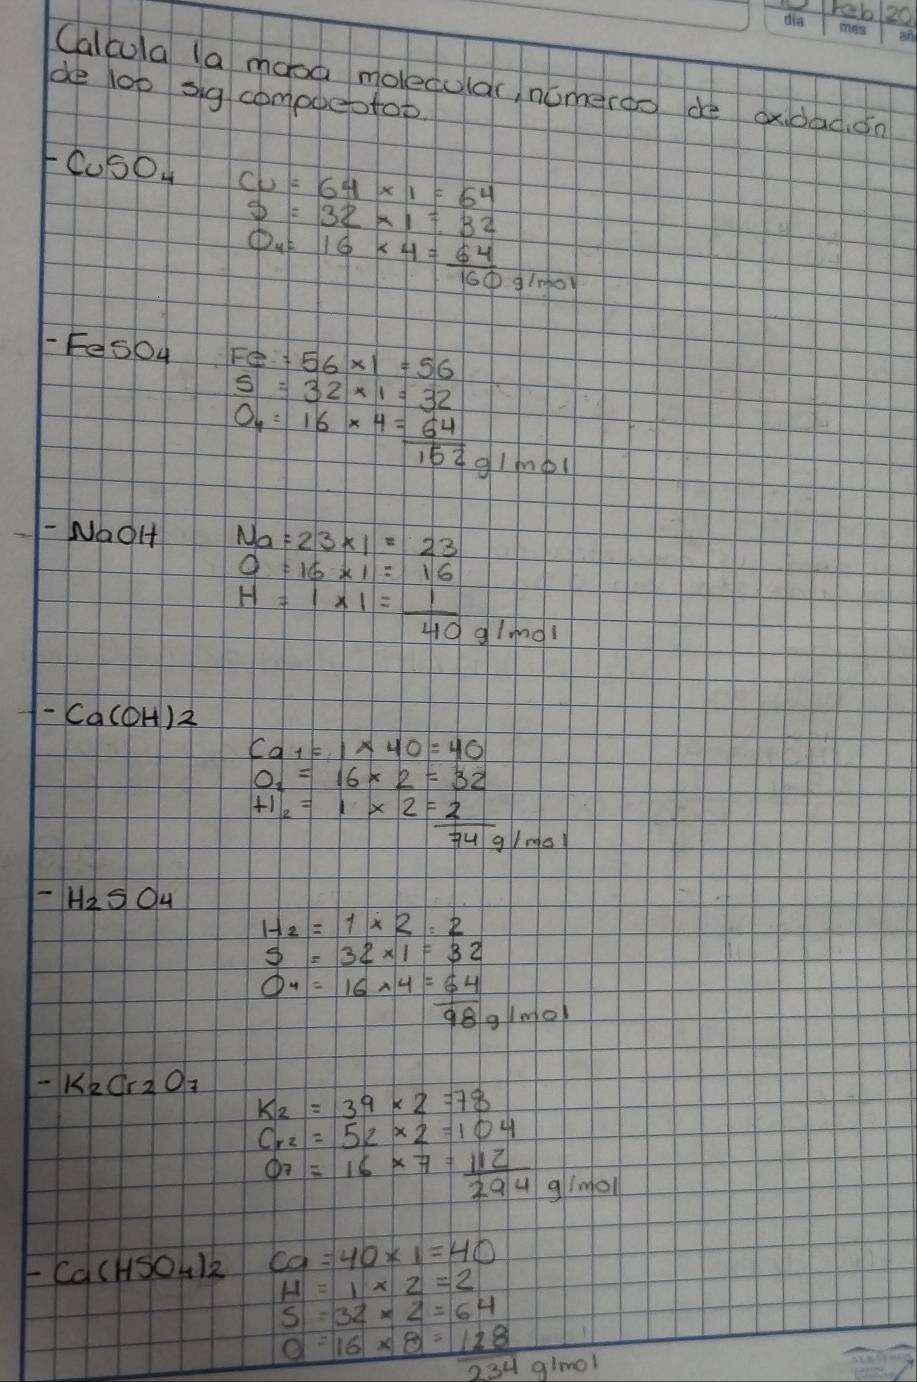 Feb 20
día mes añ
Calcula la masa molecular, números de oxidación
de los sig compuestos.
- CuSO4 Cu = 64 × 1 = 64
S = 32 × 1 = 32
O4 = 16 × 4 = 64
160 g/mol
- FeSO4 Fe = 56 × 1 = 56
S = 32 × 1 = 32
O4 = 16 × 4 = 64
152 g/mol
- NaOH Na = 23 × 1 = 23
O = 16 × 1 = 16
H = 1 × 1 = 1
40 g/mol
- Ca(OH)2
Ca1 = 1 × 40 = 40
O2 = 16 × 2 = 32
H2 = 1 × 2 = 2
74 g/mol
- H2SO4
H2 = 1 × 2 = 2
S = 32 × 1 = 32
O4 = 16 × 4 = 64
98 g/mol
- K2Cr2O7
K2 = 39 × 2 = 78
Cr2 = 52 × 2 = 104
O7 = 16 × 7 = 112
294 g/mol
- Ca(HSO4)2 Ca = 40 × 1 = 40
H = 1 × 2 = 2
S = 32 × 2 = 64
O = 16 × 8 = 128
234 g/mol